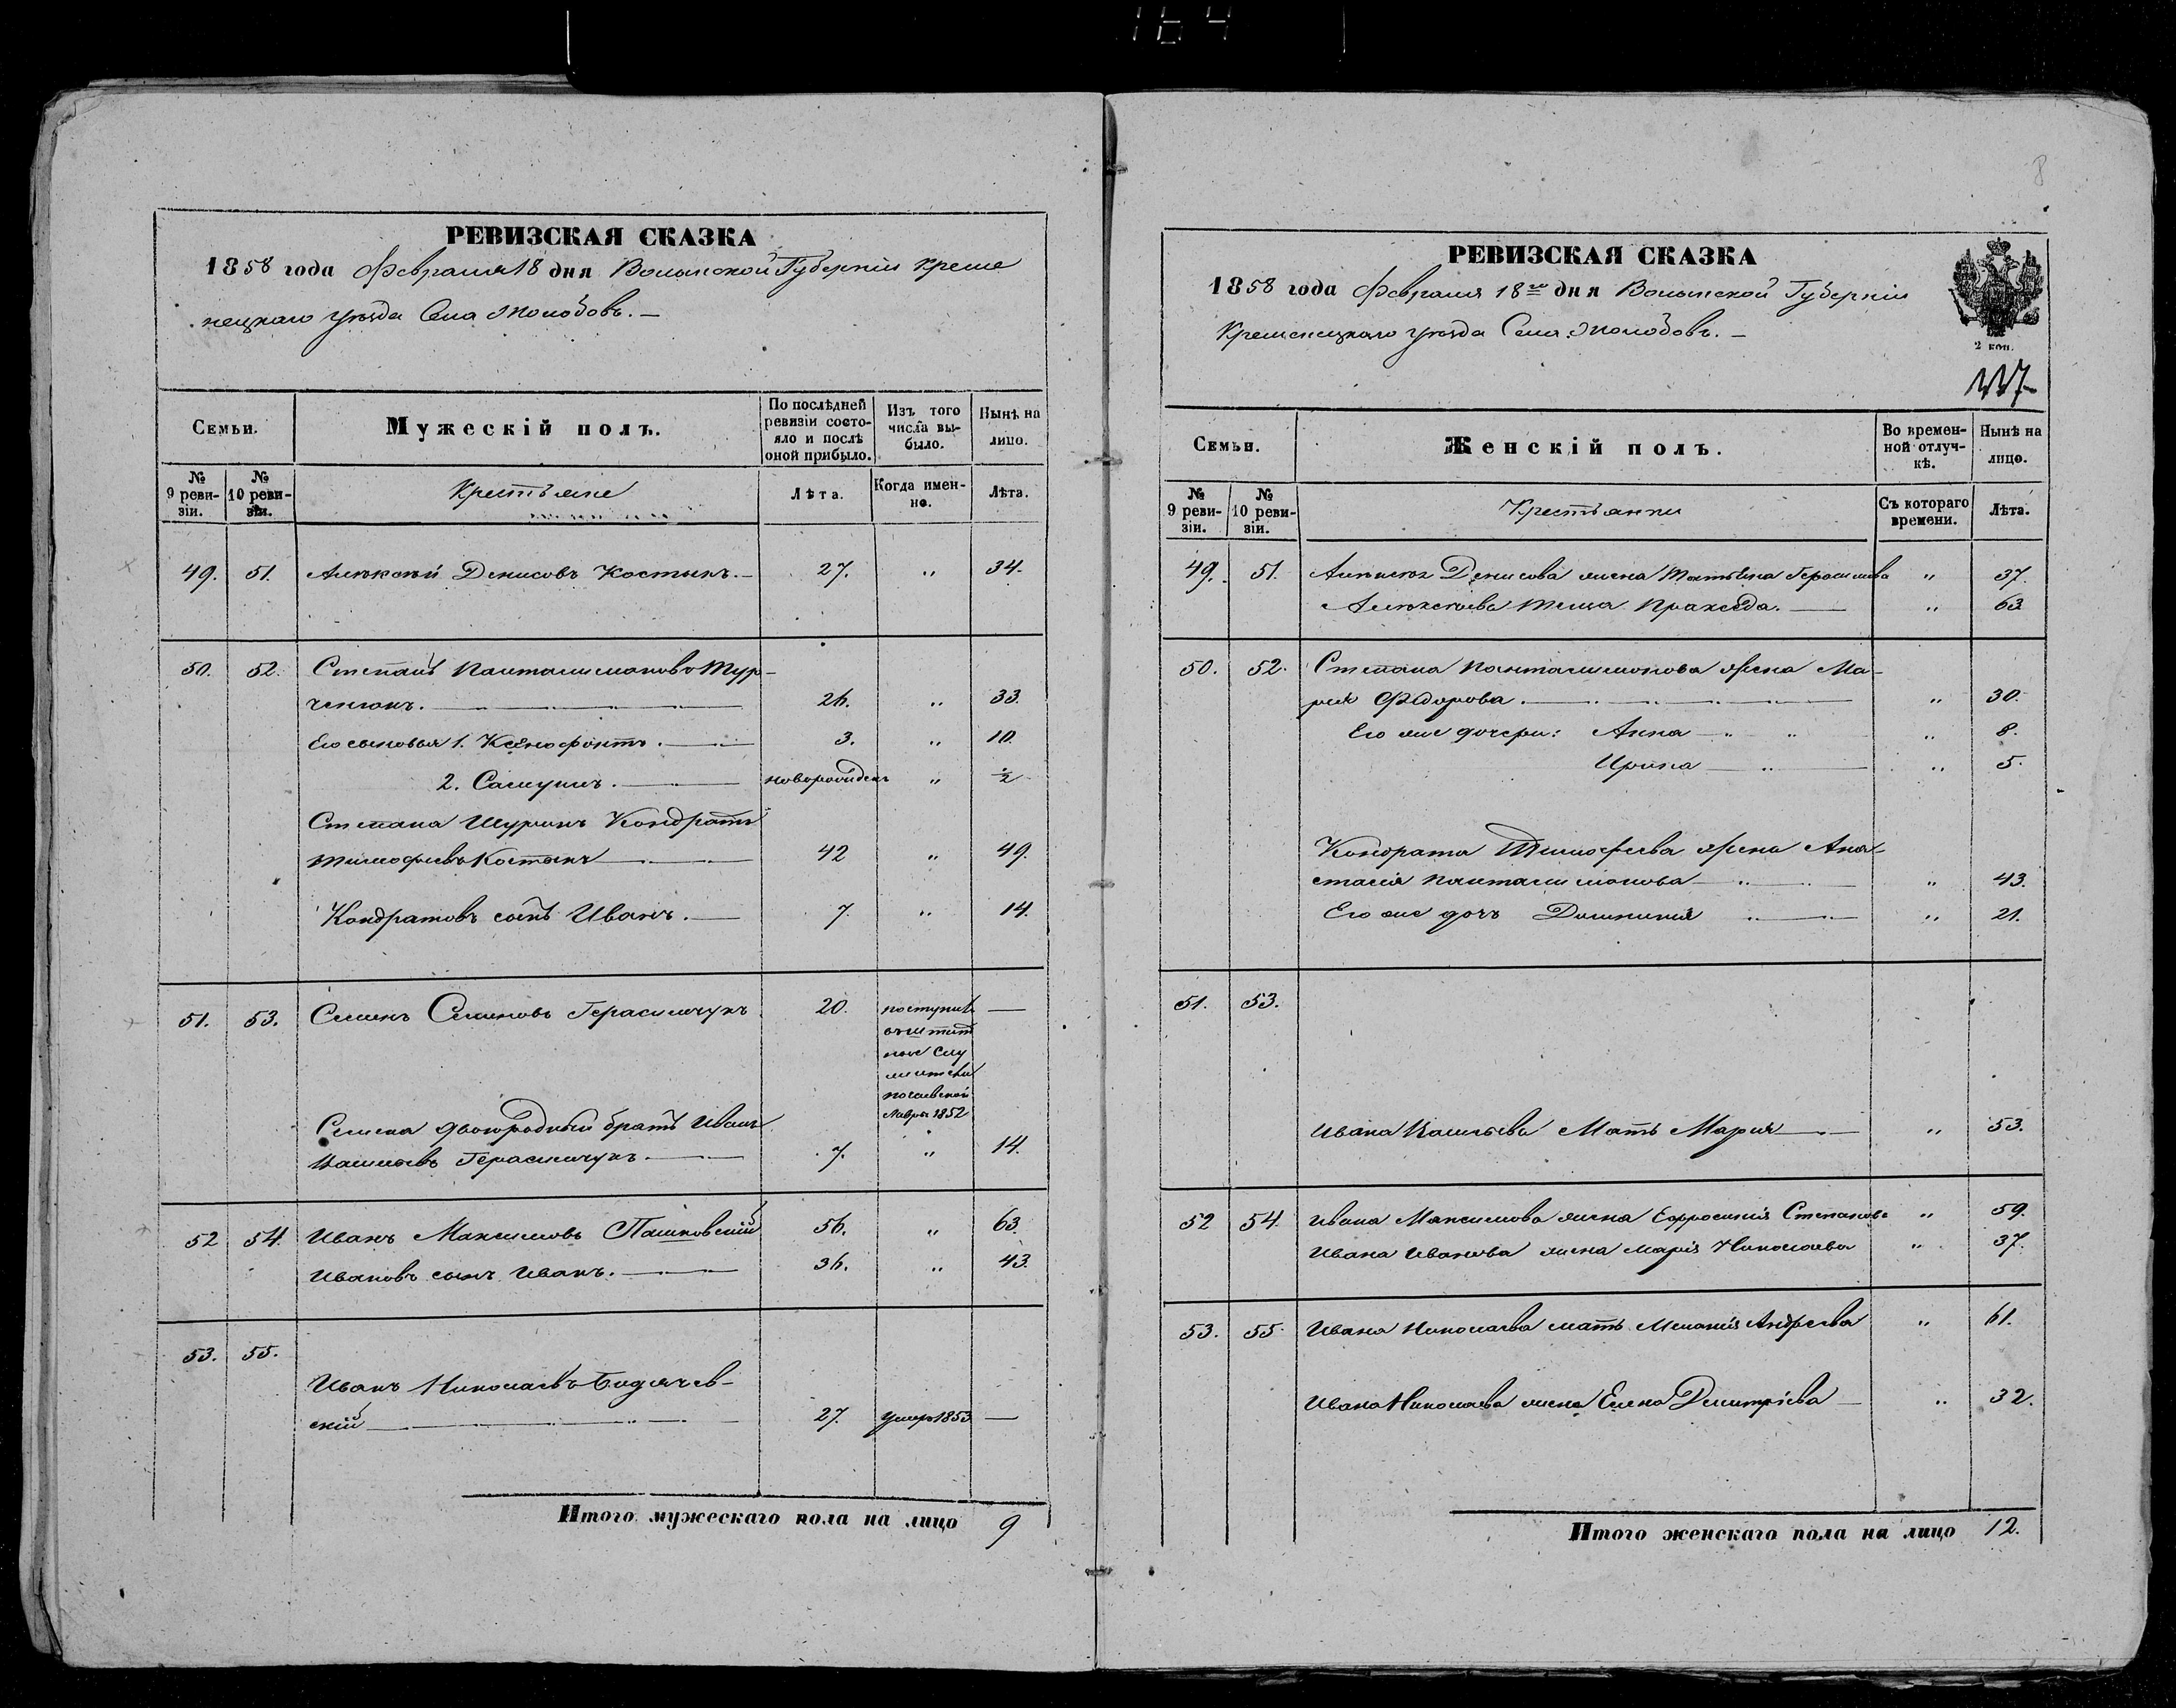 164
РЕВИЗСКАЯ СКАЗКА
1858 года Февраля 18 дня Волынской Губерніи Креме
нецкаго уѣзда Села Жолобовъ. —
Семьи.
Мужескій полъ.
По послѣдней ревизіи состояло и послѣ оной прибыло.
Изъ того числа выбыло.
Нынѣ на лицо.
№ 9 ревизіи.
№ 10 ревизіи.
Крестьяне
Лѣта.
Когда именно.
Лѣта.
49. 51. Алексѣй Денисовъ Костюкъ. — 27. " 34.
50. 52. Степанъ Пантелимоновъ Тур-
ченюкъ. 26. " 33.
Его сыновья 1. Ксенофонтъ. 3. " 10.
2. Самуилъ. новорожденъ " ½
Степана Шуринъ Кондратъ
Тимофеевъ Костюкъ 42 " 49.
Кондратовъ сынъ Иванъ. 7. " 14.
51. 53. Семенъ Семеновъ Герасимчукъ 20. поступилъ —
въ штат
ные слу
жители
почаевской
Лавры 1852
Семена двоюродный братъ Иванъ
Васильевъ Герасимчукъ. 7. " 14.
52 54. Иванъ Максимовъ Пашковскій 56. " 63.
Ивановъ сынъ Иванъ. 36. " 43.
53. 55.
Иванъ Николаевъ
скій 27. умеръ 1853 —
Итого мужескаго пола на лицо 9
8
РЕВИЗСКАЯ СКАЗКА
1858 года Февраля 18го дня Волынской Губерніи
Кременецкаго уѣзда Села Жолобовъ. —
2 коп.
Семьи.
Женскій полъ.
Во временной отлучкѣ.
Нынѣ на лицо.
№ 9 ревизіи.
№ 10 ревизіи.
Крестьянки
Съ котораго времени.
Лѣта.
49. 51. Алексѣя Денисова жена Татьяна Герасимова " 37.
Алексѣева теща Праксѣда. " 63
50. 52. Степана Пантелимонова жена Ма-
рія Федорова. " 30.
Его же дочери: Анна " 8.
Ирина " 5.
Кондрата Тимофеева жена Ана-
стасія Пантелимонова " 43.
Его же дочь Домникія " 21.
51. 53.
Ивана Васильева Мать Марія " 53.
52 54. Ивана Максимова жена Ефросинія Степанова " 59.
Ивана Иванова жена Марія Николаева " 37.
53. 55. Ивана Николаева мать Меланія Андреева " 61.
Ивана Николаева жена Елена Дмитріева " 32.
Итого женскаго пола на лицо 12.